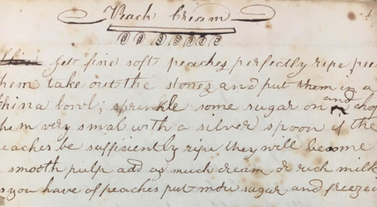 Peach Cream
Get fine soft peaches perfectly ripe pee
hem take out the stones and put them in a
china bowl; sprinkle some sugar on and chop
hem very smal with a silver spoon if the
eaches be sufficiently ripe they will become
smooth pulp add as much cream or rich milk
s you have of peaches put more sugar and freeze